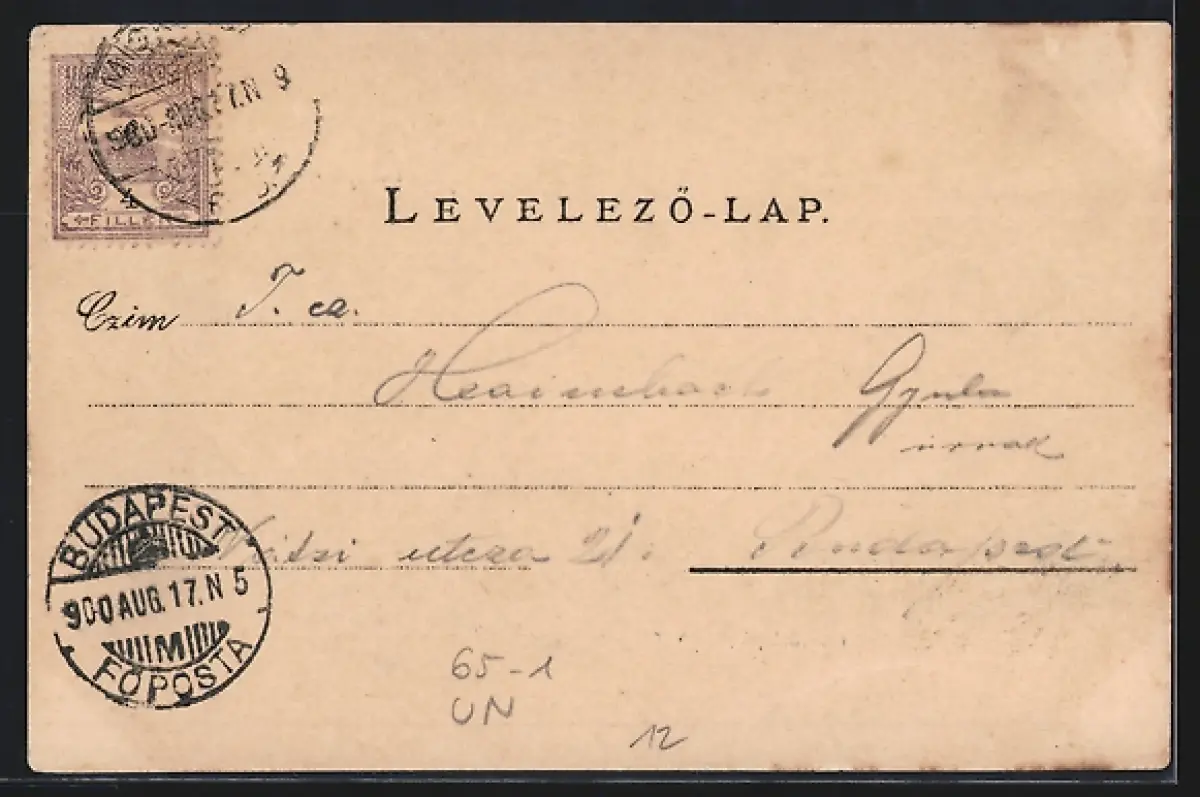 900 AUG. 17. N 9
4
FILLÉR
LEVELEZŐ-LAP.
Czim T. cz.
Gyula
úrnak
utcza 21. Budapest
BUDAPEST
900 AUG. 17. N 5
M
FŐPOSTA
65-1
UN
12